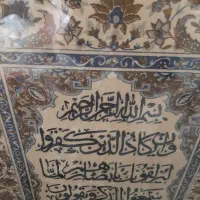 بسم الله الرحمن الرحيم
وإن يكاد الذين كفروا
ليزلقونك بأبصارهم لما
سمعوا الذكر ويقولون